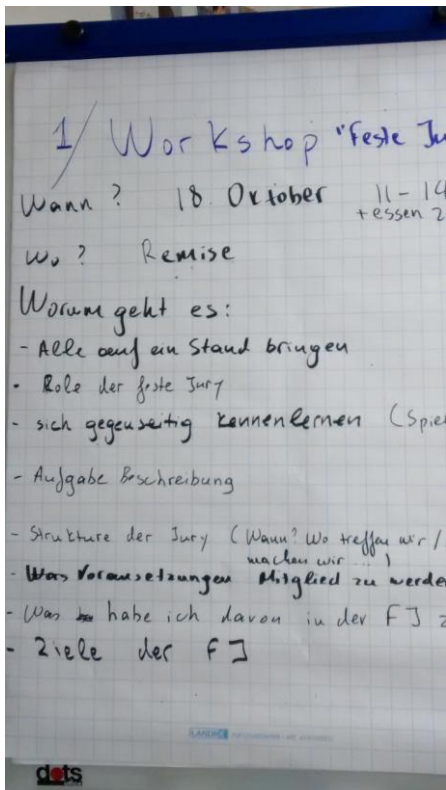 1/ Workshop "Feste Ju
Wann? 18. Oktober 11-14
+essen 2
Wo? Remise
Worum geht es:
- Alle auf ein Stand bringen
- Role der feste Jury
- sich gegenseitig kennenlernen (Spiel
- Aufgabe Beschreibung
- Strukture der Jury (Wann? Wo treffen wir /
machen wir ...)
- Was Voraussetzungen Mitglied zu werde
- Was habe ich davon in der FJ z
- Ziele der FJ
LANDRÉ
dots